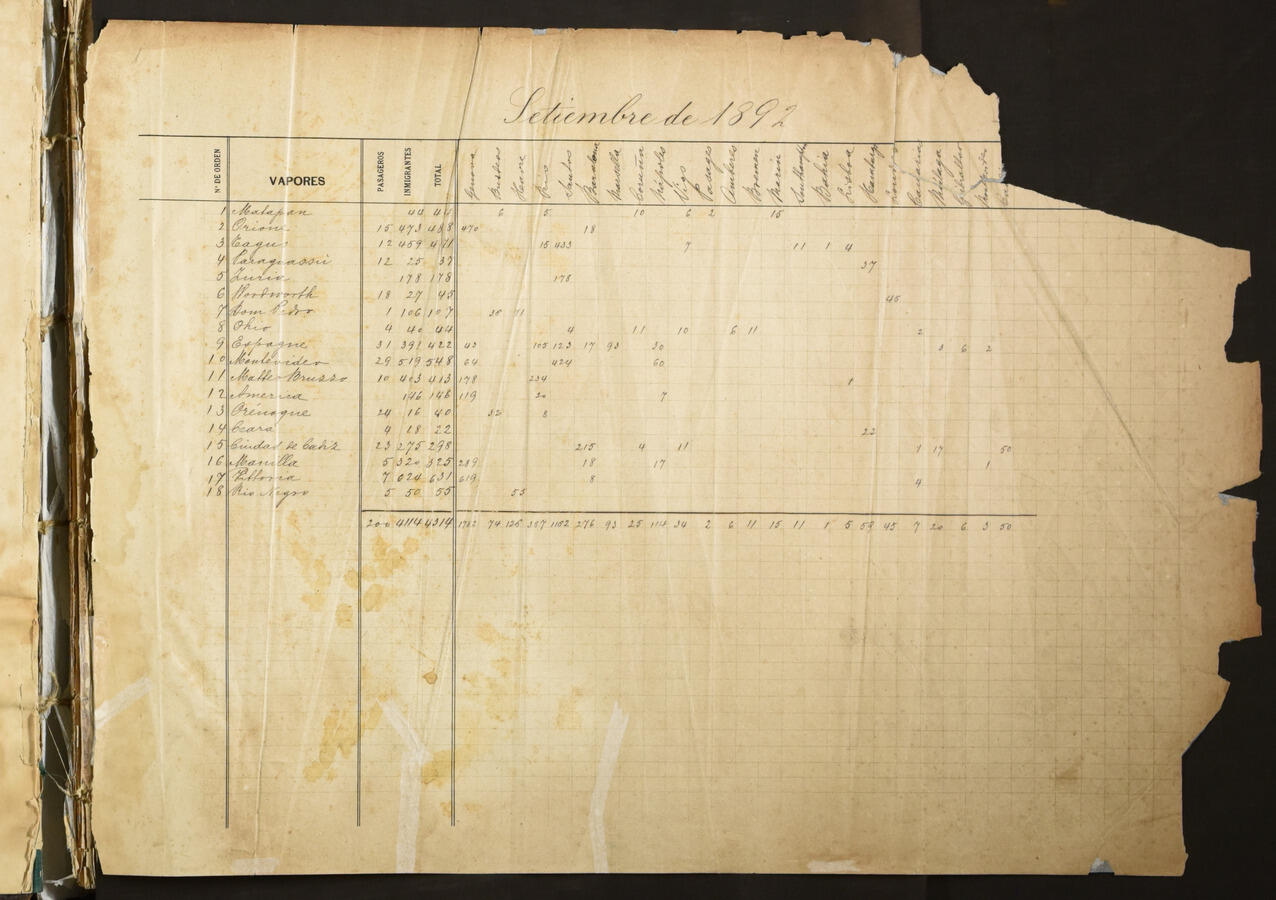 Setiembre de 1892
Nº DE ORDEN VAPORES PASAGEROS INMIGRANTES TOTAL Genova Burdeos Havre Rio Santos Barcelona Marsella Coruña Nápoles Vigo Pasages Amberes Bremen Marin Southampton Bahia Lisboa Hamburgo Málaga Gibraltar
1 Matapan 44 44 6 5 10 6 2 15
2 Orione 15 473 488 470 18
3 Tagus 12 459 471 15 433 7 11 1 4
4 Paraguassú 12 25 37 37
5 Zuria 178 178 178
6 Wordsworth 18 27 45 45
7 Dom Pedro 1 106 107 36 71
8 Ohio 4 40 44 4 11 10 6 11 2
9 Espagne 31 391 422 43 105 123 17 93 30 3 6 2
10 Montevideo 29 519 548 64 424 60
11 Matteo Bruzzo 10 403 413 178 234 1
12 America 146 146 119 20 7
13 Orénoque 24 16 40 32 8
14 Ceará 4 18 22 22
15 Ciudad de Cadiz 23 275 298 215 4 11 1 17 50
16 Manilla 5 320 325 289 18 17 1
17 Vittoria 7 624 631 619 8 4
18 Rio Negro 5 50 55 55
200 4114 4314 74 126 387 1182 276 93 25 114 34 2 6 11 15 11 1 5 59 45 7 20 6 3 50